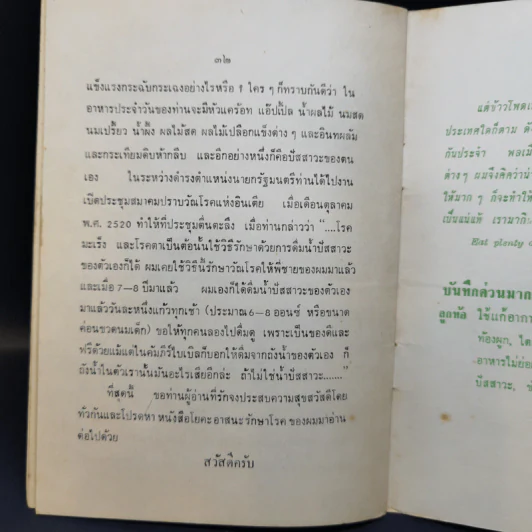 ๓๒
แข็งแรงกระฉับกระเฉงอย่างไรหรือ ? ใคร ๆ ก็ทราบกันดีว่า ใน
อาหารประจำวันของท่านจะมีหัวแคร้อท แอ๊ปเปิ้ล น้ำผลไม้ นมสด
นมเปรี้ยว น้ำผึ้ง ผลไม้สด ผลไม้เปลือกแข็งต่าง ๆ และอินทผลัม
และกระเทียมดิบห้ากลีบ และอีกอย่างหนึ่งก็คือปัสสาวะของตน
เอง ในระหว่างดำรงตำแหน่งนายกรัฐมนตรีท่านได้ไปงาน
เปิดประชุมสมาคมปราบวัณโรคแห่งอินเดีย เมื่อเดือนตุลาคม
พ.ศ. 2520 ทำให้ที่ประชุมตื่นตะลึง เมื่อท่านกล่าวว่า “....โรค
มะเร็ง และโรคตาเป็นต้อนั้นใช้วิธีรักษาด้วยการดื่มน้ำปัสสาวะ
ของตัวเองก็ได้ ผมเคยใช้วิธีนี้รักษาวัณโรคให้พี่ชายของผมมาแล้ว
และเมื่อ 7–8 ปีมาแล้ว ผมเองก็ได้ดื่มน้ำปัสสาวะของตัวเอง
มาแล้ววันละหนึ่งแก้วทุกเช้า (ประมาณ 6–8 ออนซ์ หรือขนาด
ค่อนขวดนมเด็ก) ขอให้ทุกคนลองไปดื่มดู เพราะเป็นของดีและ
ฟรีด้วยแม้แต่ในคัมภีร์ไบเบิลก็บอกให้ดื่มจากถังน้ำของตัวเอง ก็
ถังน้ำในตัวเรานั้นมันอะไรเสียอีกล่ะ ถ้าไม่ใช่น้ำปัสสาวะ.......”
ที่สุดนี้ ขอท่านผู้อ่านที่รักจงประสบความสุขสวัสดีโดย
ทั่วกันและโปรดหา หนังสือโยคะอาสนะรักษาโรค ของผมมาอ่าน
ต่อไปด้วย
สวัสดีครับ
แต่ข้าวโพด
ประเทศใดก็ตาม
กันประจำ
ต่างๆ ผมจึงคิดว่า
ให้มาก ๆ ก็จะทำให้
เป็นแม่แท้ เรามา
Eat plenty
บันทึกด่วนมาก
ใช้แก้อากา
ท้องผูก, ไต
อาหารไม่ย่อ
ปัสสาวะ,